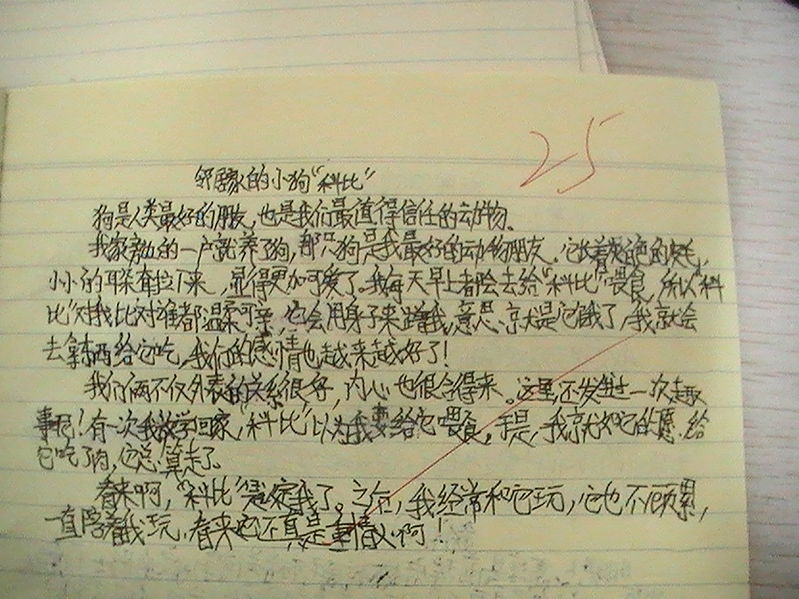 邻居家的小狗"科比"
25
狗是人类最好的朋友,也是我们最值得信任的动物。
我家旁边的一户就养了狗,那只狗是我最好的动物朋友。它长着灰色的毛,
小小的耳朵耷拉下来,显得更加可爱了。我每天早上都会去给"科比"喂食,所以"科
比"对我比对谁都温柔可亲,它会用身子来蹭我,意思就是它饿了,我就会
去拿东西给它吃,我们的感情也越来越好了!
我们俩不仅外表的关系很好,内心也很合得来。这里还发生过一次趣
事呢!有一次我放学回家,"科比"以为我要给它喂食,于是,我就如它的愿,给
它吃了肉,它总算走了。
看来啊,"科比"是定我了。之后,我经常和它玩,它也不顾累,
一直陪着我玩,看来它还真是重情义啊!